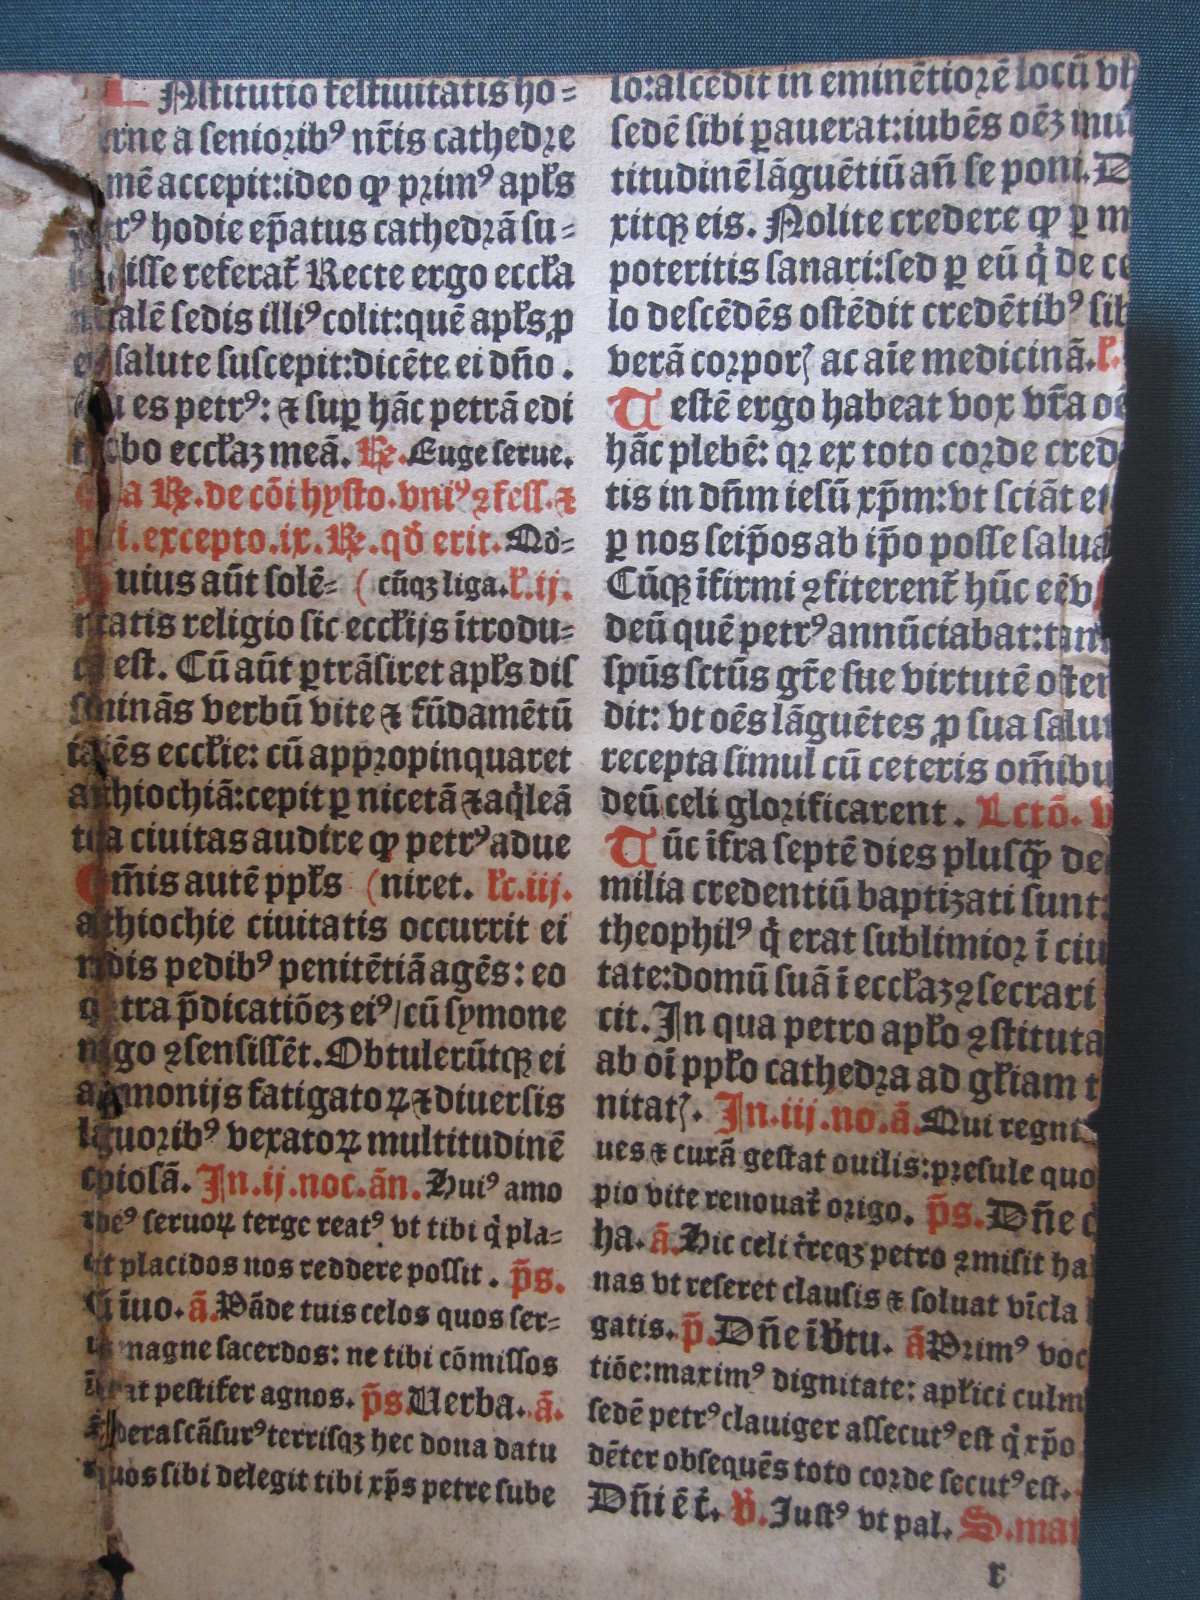 Institutio festiuitatis ho-
erne a seniorib⁹ nr̄is cathedre
mē accepit:ideo ꝙ prim⁹ apl̄s
petr⁹ hodie ep̄atus cathedrā su-
isse referat̄ Recte ergo eccl̄a
natalē sedis illi⁹ colit:quē apl̄s ꝓ
ei⁹ salute suscepit:dicēte ei dn̄o .
Tu es petr⁹: ⁊ suꝑ hāc petrā edi
cabo eccl̄aꝫ meā. R̄e. Euge serue.
R̄e. de cōi hysto. vni⁹ ꝯfess. ⁊
excepto.ix. R̄e.qd̄ erit. Ad-
Huius aūt solē- ( cūqꝫ liga. l̄.ij.
nitatis religio sic eccl̄ijs ītrodu-
cta est. Cū aūt ꝑtrāsiret apl̄s dis
seminās verbū vite ⁊ fūdamētū
iaciēs eccl̄ie: cū appropinquaret
athiochiā:cepit ꝑ nicetā ⁊ aq̇leā
tota ciuitas audire ꝙ petr⁹ adue
Om̄is autē ppl̄s (niret. l̄c.iij.
athiochie ciuitatis occurrit ei
nudis pedib⁹ penitētiā agēs: eo
q̇ cōtra p̄dicatiōeꝫ ei⁹/cū symone
mago ꝯsensissēt. Obtulerūtqꝫ ei
a demonijs fatigatoꝝ ⁊ diuersis
lāguorib⁹ vexatoꝝ multitudinē
copiosā. In.ij.noc.ān. Hui⁹ amo
rde⁹ seruoꝝ terge reat⁹ vt tibi q̇ pla-
cēt placidos nos reddere possit . p̄s.
Cū īuo. ā. Pāde tuis celos quos ser-
uas magne sacerdos: ne tibi cōmissos
pestifer agnos. p̄s. Uerba. ā.
Aspera scāsur⁹ terrisqꝫ hec dona datu
quos sibi delegit tibi xp̄s petre sube
lo:ascēdit in eminētiorē locū vb
sedē sibi ꝑauerat:iubēs oēꝫ mul
titudinē lāguētiū an̄ se poni. D
xitqꝫ eis. Nolite credere ꝙ ꝑ m
poteritis sanari:sed ꝑ eū q̇ de ce
lo descēdēs ostēdit credētib⁹ sib
verā corporꝭ ac aīe medicinā. l̄.
Testē ergo habeat vox vr̄a oē
hāc plebē: qꝛ ex toto corde cred
tis in dn̄m iesū xp̄m:vt sciāt et
ꝑ nos seip̄os ab ip̄o posse salua
Cūqꝫ īfirmi ꝯfiterent̄ hūc eē v
deū quē petr⁹ annūciabat:tan
spūs sctūs gr̄e sue virtutē osten
dit: vt oēs lāguētes ꝓ sua salut
recepta simul cū ceteris om̄ibu
deū celi glorificarent . Lctō. v
Tūc īfra septē dies plusꝗ̄ de
milia credentiū baptizati sunt:
theophil⁹ q̇ erat sublimior ī ciu
tate:domū suā ī eccl̄aꝫ ꝯsecrari
cit. In qua petro apl̄o ꝯstituta
ab oī ppl̄o cathedra ad gl̄iam t
nitatꝭ. In.iij.no.ā. Qui regni
ues ⁊ curā gestat ouilis:presule quo
pio vite renouat̄ origo. p̄s. Dn̄e q̇
ha. ā. Hic celi terreqꝫ petro ꝯmisit ha
nas vt reseret clausis ⁊ soluat vīcla
gatis. p̄. Dn̄e ī v̄tu. ā Prim⁹ voc
tiōe:maxim⁹ dignitate: apl̄ici culm
sedē petr⁹ clauiger assecut⁹ est q̇ xp̄o
dēter obsequēs toto corde secut⁹ est.
Dn̄i ē t̄. v̄. Just⁹ vt pal. S.mat
r